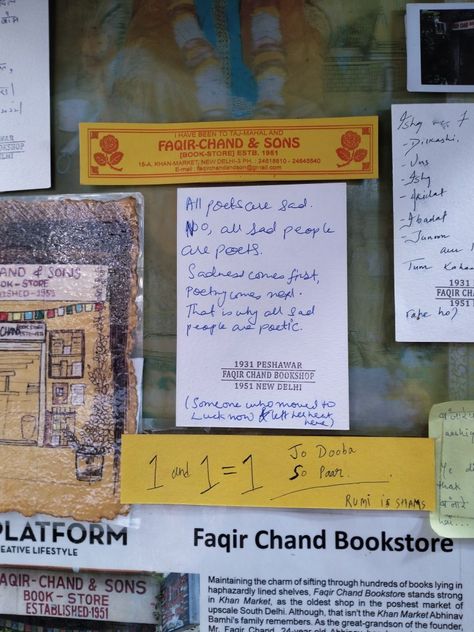 I HAVE BEEN TO TAJ-MAHAL AND
FAQIR-CHAND & SONS
[BOOK-STORE] ESTB. 1951
15-A, KHAN-MARKET, NEW DELHI-3 PH. : 24618810 - 24645540
E-mail : faqirchandandson@gmail.com
All poets are sad.
No, all sad people
are poets.
Sadness comes first,
Poetry comes next.
That is why all sad
people are poetic.
1931 PESHAWAR
FAQIR CHAND BOOKSHOP
1951 NEW DELHI
(Someone who moved to
Lucknow & left her heart
here)
Ishq
- Dilkashi
- Uns
- Ishq
- Akidat
- Ibadat
- Junoon
Tum
1931
FAQIR CHAND
1951
ho?
AWAR
BOOKSHOP
DELHI
AND & SONS
OK - STORE
1 and 1 = 1
Jo Dooba
So Paar
RUMI is SHAMS
PLATFORM
EATIVE LIFESTYLE
Faqir Chand Bookstore
FAQIR-CHAND & SONS
BOOK - STORE
ESTABLISHED-1951
Maintaining the charm of sifting through hundreds of books lying in
haphazardly lined shelves, Faqir Chand Bookstore stands strong
in Khan Market, as the oldest shop in the poshest market of
upscale South Delhi. Although, that isn't the Khan Market Abhinav
Bamhi's family remembers. As the great-grandson of the founder,
Mr. Faqir Chand, 24-year old